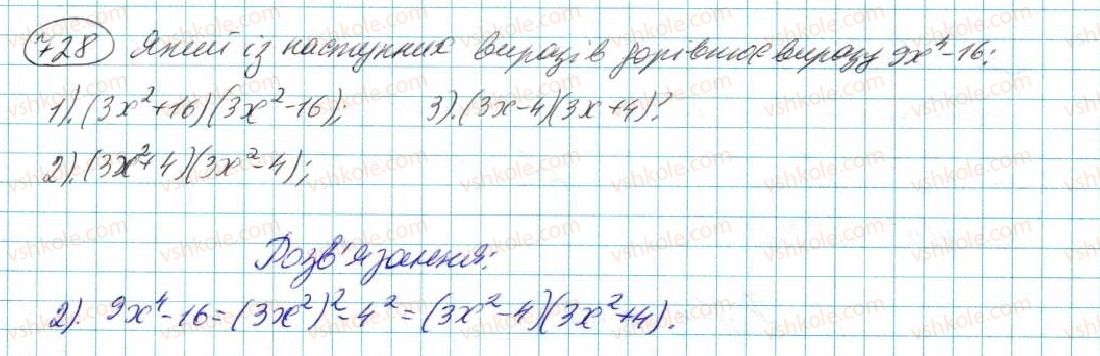 728 Який із наступних виразів дорівнює виразу 9x⁴-16:
1). (3x²+16)(3x²-16); 3). (3x-4)(3x+4)?
2). (3x²+4)(3x²-4);
Розв'язання:
2). 9x⁴-16=(3x²)²-4²=(3x²-4)(3x²+4).